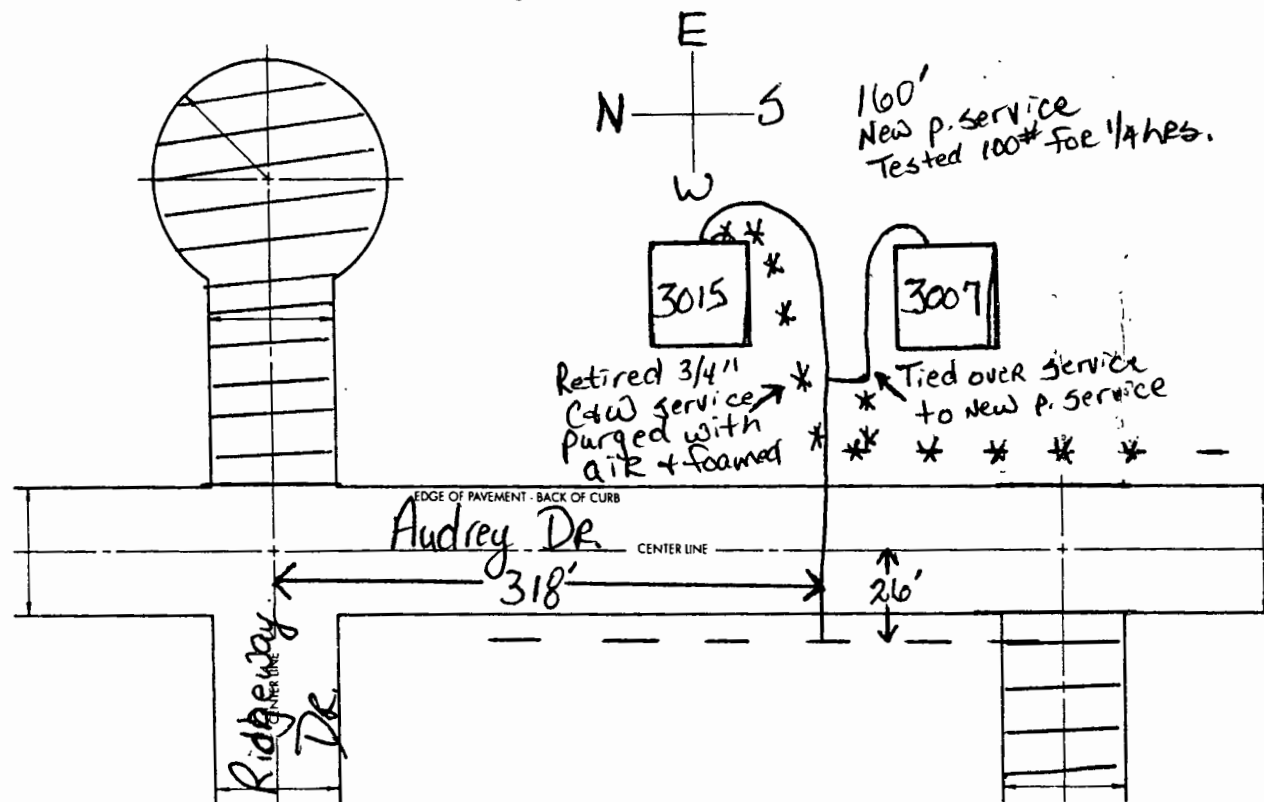 E
N S
W
160'
New p. service
Tested 100# for 1/4 hrs.
3015
3007
Retired 3/4"
C&W service
purged with
air + foamed
Tied over service
to New p. service
EDGE OF PAVEMENT - BACK OF CURB
Audrey DR.
CENTER LINE
318'
26'
Ridgeway
CENTER LINE
DR.